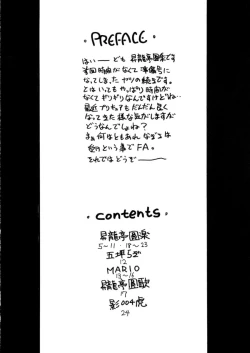 ・PREFACE・
はい── ども 昇龍亭圓楽です
前回時間がなくて準備号に
なってしまったヤツの続きです。
とはいっても やっぱり時間が
なくてギリギリなんですけどね…
最近プリキュアもだんだん良く
なってきた様な気がしますが
どうなんでしょね？
まぁ何はともあれ なぎさは
受けという事でFA。
それではどうぞ────
・contents・
昇龍亭圓楽
5～11・18～23
五坪5ξ
12
MARIO
13～16
昇龍亭圓歌
17
影004虎
24